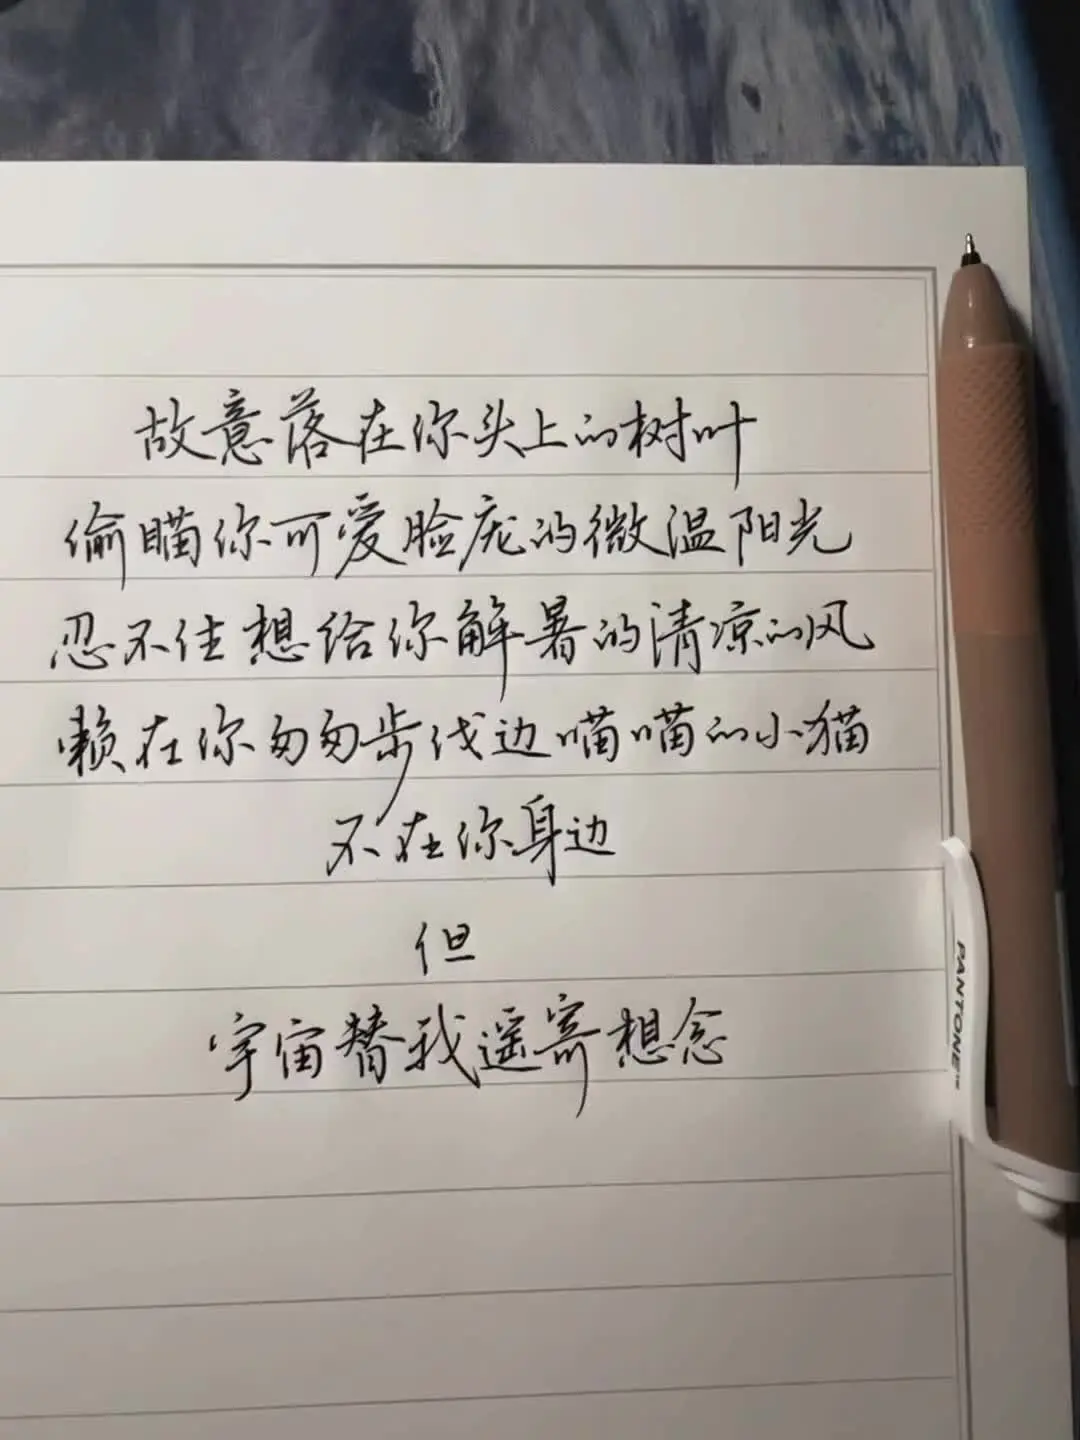 故意落在你头上的树叶
偷瞄你可爱脸庞的微温阳光
忍不住想给你解暑的清凉的风
赖在你匆匆步伐边喵喵的小猫
不在你身边
但
宇宙替我遥寄想念
PANTONE